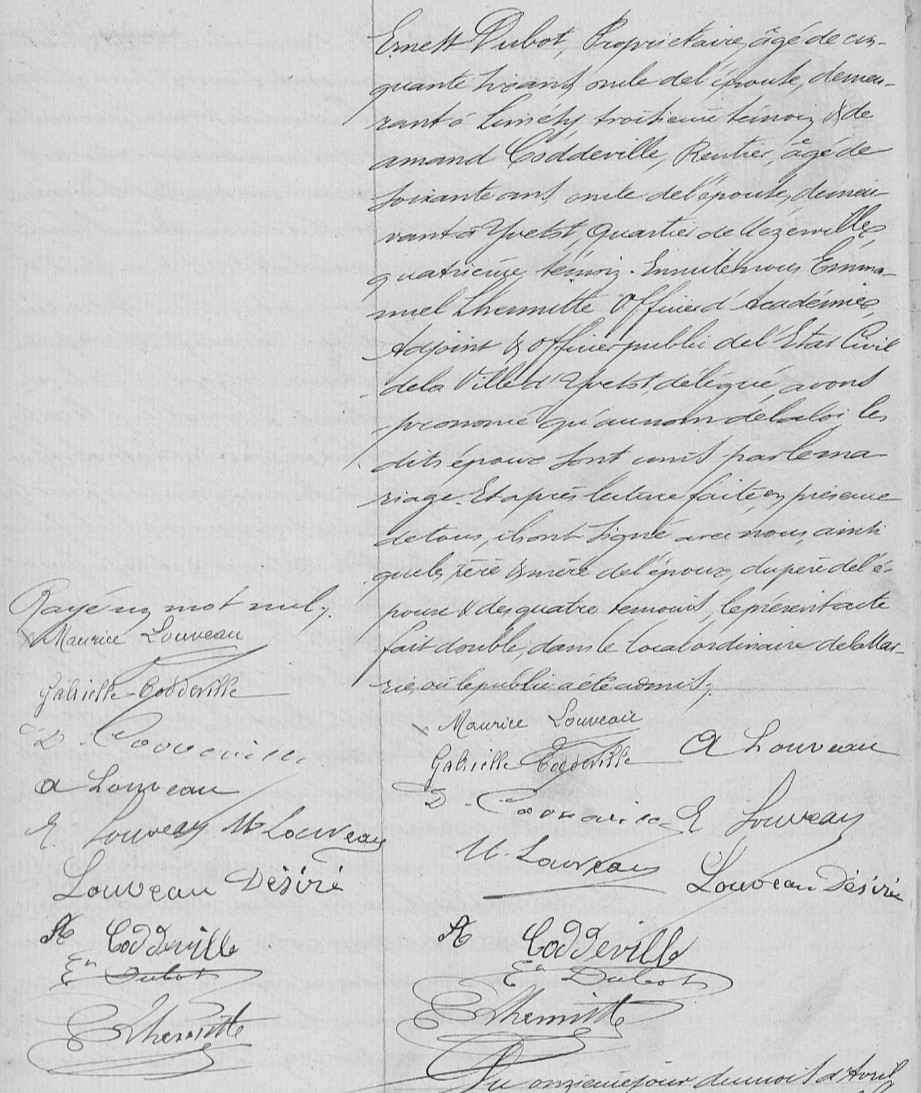 Ernest Dubot, Propriétaire, âgé de cin-
quante six ans, oncle de l'épouse, demeu-
rant à Limésy, troisième témoin, & de
amand Coddeville, Rentier, âgé de
soixante ans, oncle de l'épouse, demeu-
rant à Yvetot, quartier de
quatrième témoin. Ensuite nous, Emma-
nuel Lhermitte, Officier d'Académie,
Adjoint & Officier public de l'Etat Civil
de la Ville d'Yvetot, délégué, avons
prononcé qu'au nom de la loi, les
dits époux sont unis par le ma
riage. Et après lecture faite, en présence
de tous, ils ont signé avec nous, ainsi
que les père & mère de l'époux, du père de l'é-
pouse & des quatre témoins, le présent acte
fait double, dans le local ordinaire de la Mai-
rie, où le public a été admis.
Rayé un mot nul.
Maurice Louveau
Gabrielle Coddeville
D. Coddeville
a Louveau
E. Louveau M Louveau
Louveau Désiré
A Coddeville
En Dubot
E Lhermitte
Maurice Louveau
Gabrielle Coddeville A Louveau
D. Coddeville E Louveau
M. Louveau Louveau Désiré
A Coddeville
En Dubot
E Lhermitte
Du onzième jour du mois d'Avril